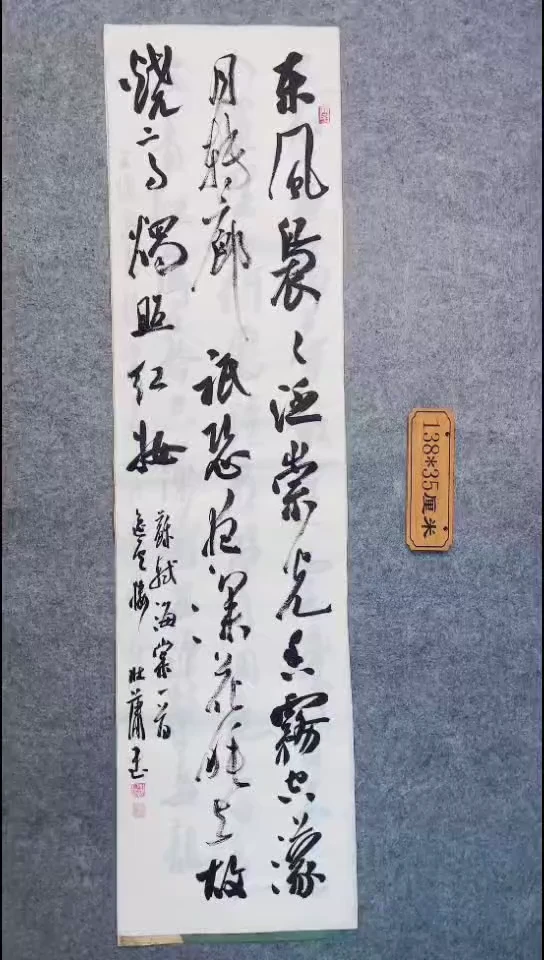 东風裊〻泛崇光香霧空濛
月轉廊祇恐夜深花睡去故
燒高燭照紅妝
蘇軾海棠一首
138*35厘米